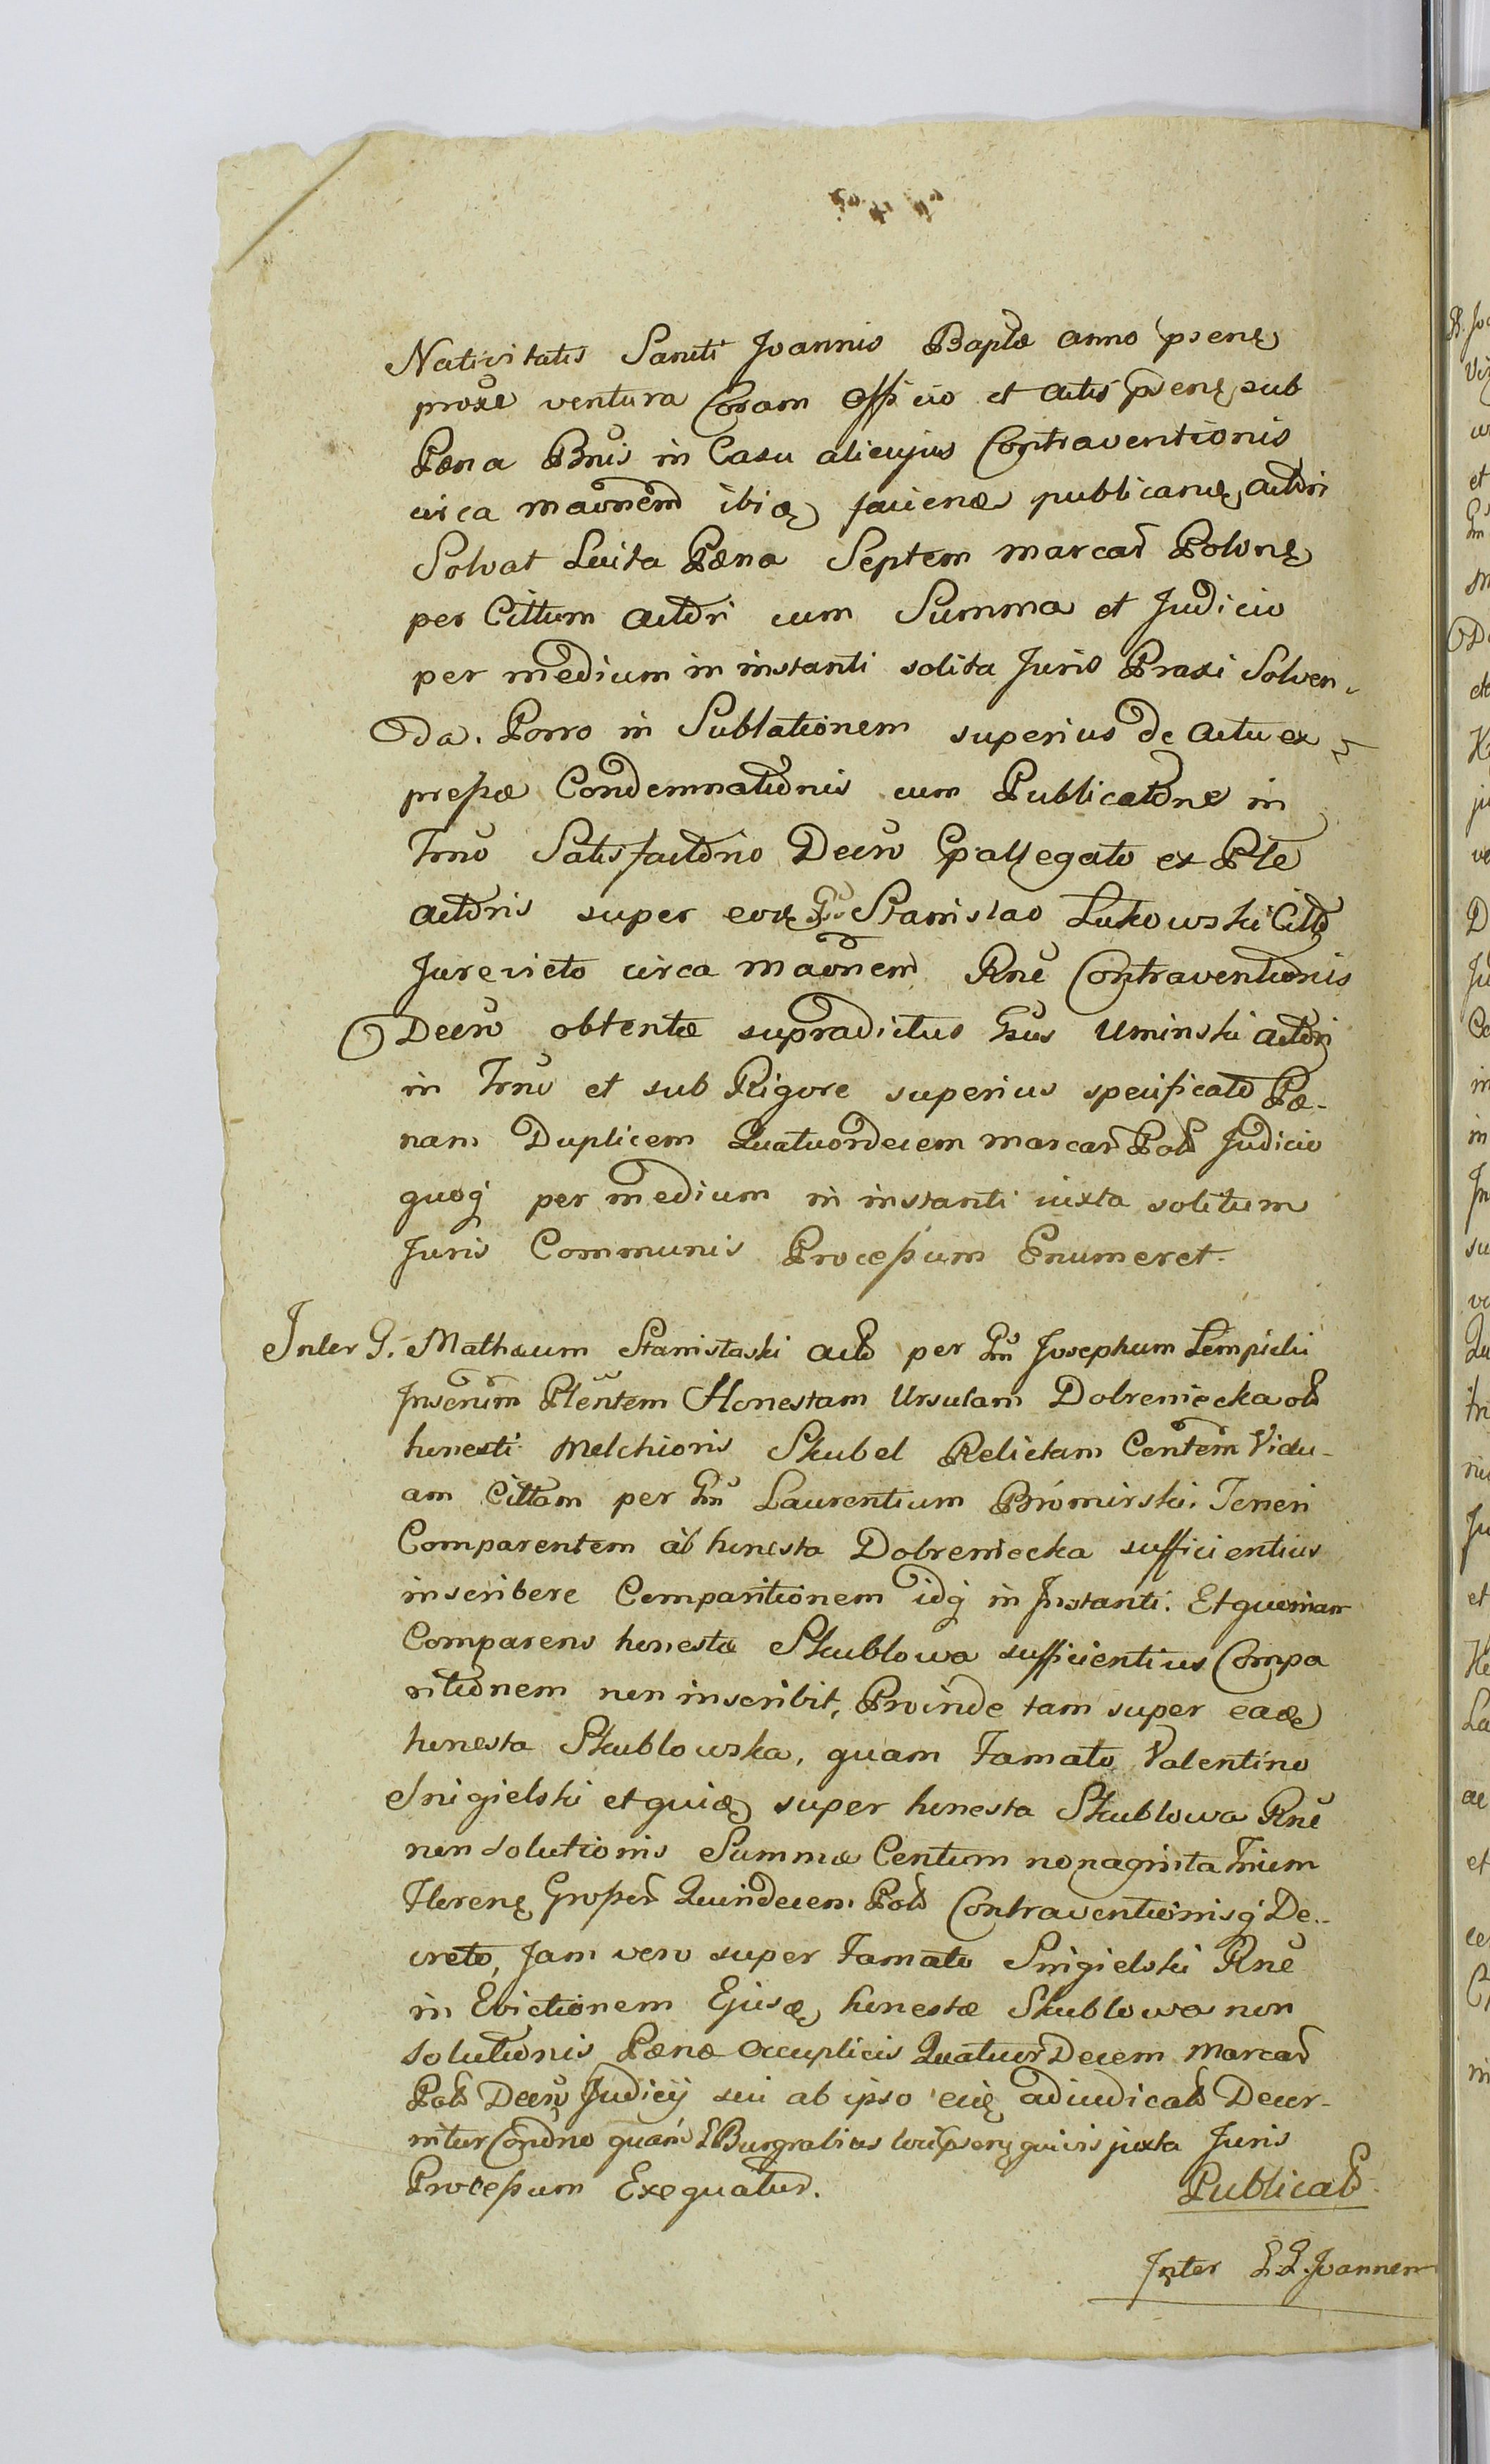 Nativitatis Sancti Joannis Baptæ anno psenę
proxe ventura Coram Officio et Actis psenę, sub
Pæna Bnis in Casu alicujus Contraventionis
circa maõnem ibiq faciendæ publicanę, actõri
Solvat Luita Pæna Septem marcar Polonę
per Cittum Actõri cum Summa et Judicio
per medium in instanti solita Juris Praxi Solven-
da. Porro in Sublationem superius de actu ex
pressæ Condemnatõnis cum Publicatõne in
Trno Satisfactõrio Decrõ ex Pte
actõris super eodę Gso Stanislao Lukowski Citto
Jurevicto circa maõnem Rne Contraventionis
Decrõ obtentæ supradictus Gsus Uminski actõri
in Trno et sub Rigore superius specificato Pæ-
nam Duplicem Quatuordecem marcar Pol Judicio
quoq per medium in instanti iuxta solitum
Juris Communis Processum Enumeret.
Inter G. Mathæum Stanislaski act per Gm Josephum Lempicki
Inscrum Plentem Honestam Ursulam Dobreniecka ol
honesti Melchioris Skubel Relictam Centem Vidu-
am Cittam per Gm Laurentium Bromirski. Teneri
Comparentem ab honesta Dobreniecka sufficientius
inscribere Comparitionem idq in Instanti. Et quoniam
Comparens honesta Skublowa sufficientius Compa
ritionem non inscribit, Proinde tam super eadę
honesta Skublowska, quam Famato Valentino
Snigielski et quidę super honesta Skublowa Rne
non solutionis Summæ Centum nonaginta Trium
Florenę Grosser Quindecem Pol Contraventionisq De-
creto, Jam vero super Famato Snigielski Rne
in Evictionem Ejusdę honestæ Skublowa non
solutionis Pænæ Quatuor Decem marcar
Pol Decrõ Judicij sui ab ipso eidę adiudicat Decer-
nitur Condno quam Burgrabius loci psenę quivis juxta Juris
Processum Exequatur. Publicat
Inter G.G. Joannem